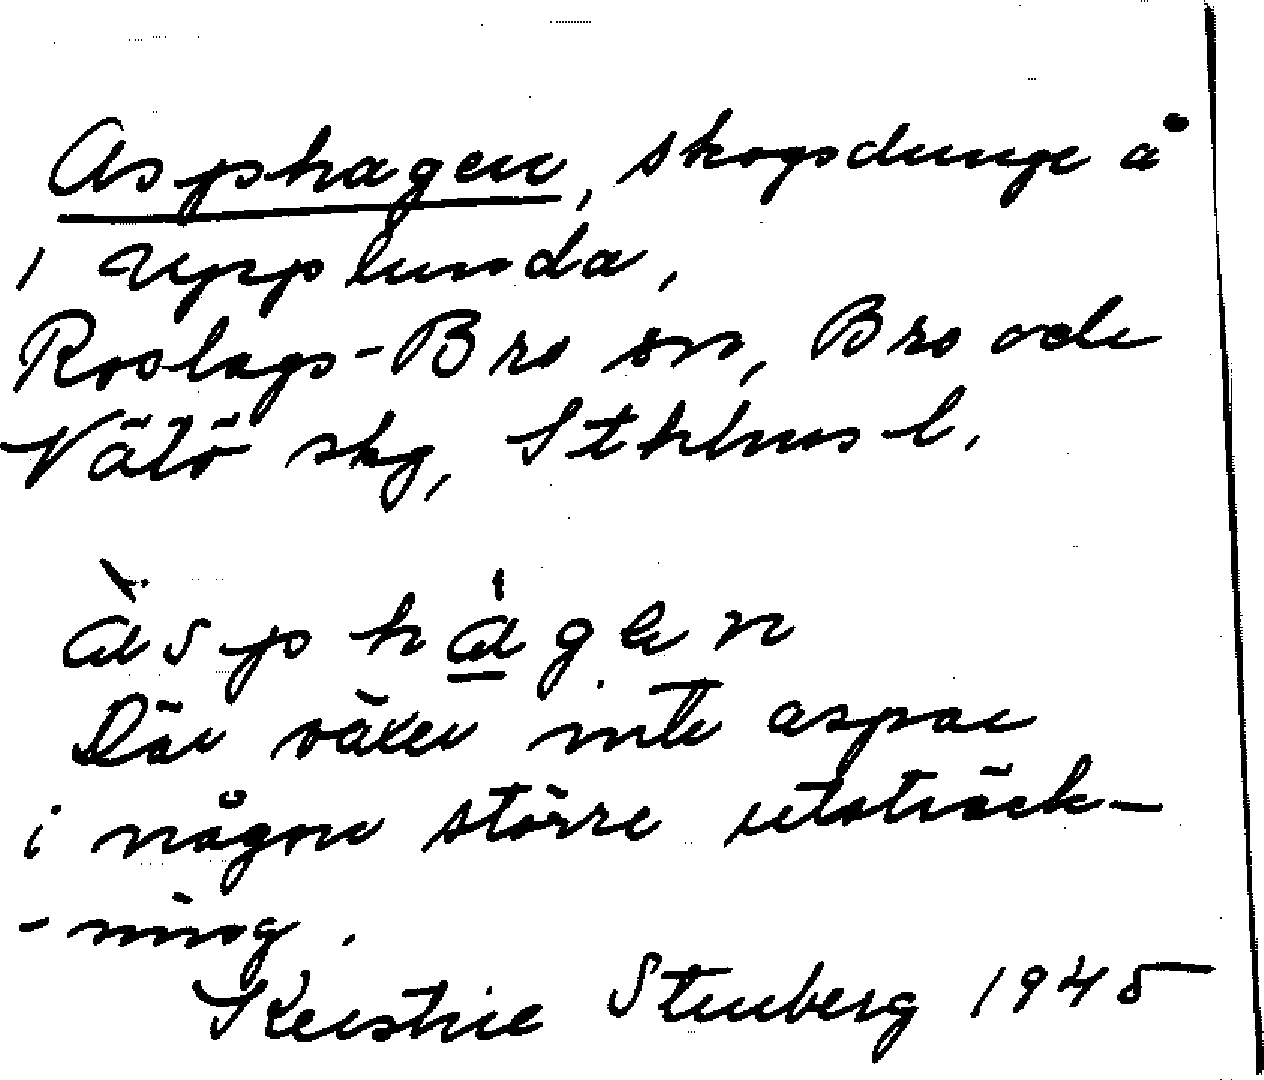 Asphagen, skogsdunge å
1 Upplunda,
Roslags-Bro sn, Bro och
Vätö skg, Sthlms l.
àsphá̱gen
Där växer inte aspar
i någon större utsträck-
-ning.
Kerstin Stenberg 1945